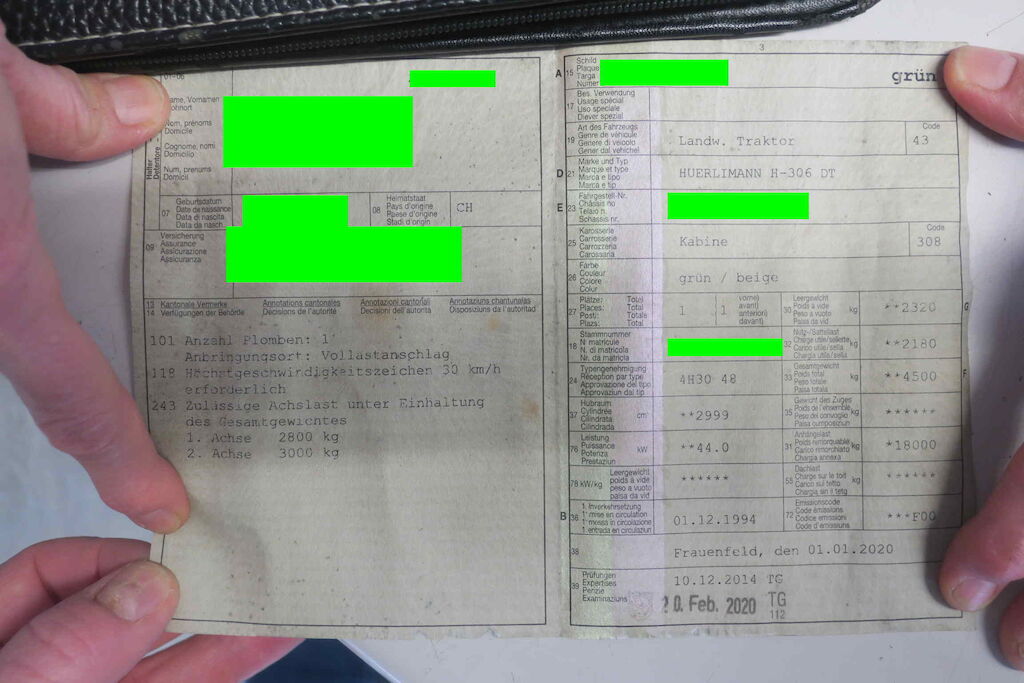 01-06
ame, Vornamen
ohnort
Nom, prénoms
Domicile
Cognome, nomi
Domicilio
Num, prenums
Domicil
Halter
Détenteur
07
Geburtsdatum
Date de naissance
Data di nascita
Data da nasch.
08
Heimatstaat
Pays d'origine
Paese d'origine
Stadi d'origin
CH
09
Versicherung
Assurance
Assicurazione
Assicuranza
13
14
Kantonale Vermerke
Verfügungen der Behörde
Annotations cantonales
Décisions de l'autorité
Annotazioni cantonali
Decisioni dell'autorità
Annotaziuns chantunalas
Disposiziuns da l'autoritad
101 Anzahl Plomben: 1
Anbringungsort: Vollastanschlag
118 Höchstgeschwindigkeitszeichen 30 km/h
erforderlich
243 Zulässige Achslast unter Einhaltung
des Gesamtgewichtes
1. Achse 2800 kg
2. Achse 3000 kg
3
A
15
Schild
Plaque
Targa
Numer
grün
17
Bes. Verwendung
Usage spécial
Uso speciale
Diever spezial
19
Art des Fahrzeugs
Genre de véhicule
Genere di veicolo
Gener dal vehichel
Landw. Traktor
Code
43
D
21
Marke und Typ
Marque et type
Marca e tipo
Marca e tip
HUERLIMANN H-306 DT
E
23
Fahrgestell-Nr.
Châssis no
Telaio n.
Schassis nr.
25
Karosserie
Carrosserie
Carrozzeria
Carossaria
Kabine
Code
308
26
Farbe
Couleur
Colore
Colur
grün / beige
27
Plätze: Total
Places: Total
Posti: Totale
Plazs: Total
1
1
vorne)
avant)
anteriori)
davant)
30
Leergewicht
Poids à vide
Peso a vuoto
Paisa da vid
kg
**2320
G
18
Stammnummer
N° matricule
N. di matricola
Nr. da matricla
32
Nutz-/Sattellast
Charge utile/sellette
Carico utile/sella
Chargia utila/sella
kg
**2180
24
Typengenehmigung
Réception par type
Approvazione del tipo
Approvaziun dal tip
4H30 48
33
Gesamtgewicht
Poids total
Peso totale
Paisa totala
kg
**4500
F
37
Hubraum
Cylindrée
Cilindrata
Cilindrada
cm³
**2999
35
Gewicht des Zuges
Poids de l'ensemble
Peso del convoglio
Paisa cumposiziun
kg
******
76
Leistung
Puissance
Potenza
Prestaziun
kW
**44.0
31
Anhängelast
Poids remorquable
Carico rimorchiato
Chargia annexa
kg
*18000
78 kW/kg
Leergewicht
poids à vide
peso a vuoto
paisa da vid
******
55
Dachlast
Charge sur le toit
Carico sul tetto
Chargia sin il tetg
kg
******
B
36
1. Inverkehrsetzung
1re mise en circulation
1a messa in circolazione
1. entrada en circulaziun
01.12.1994
72
Emissionscode
Code émissions
Codice emissioni
Code d'emissiuns
***F00
38
Frauenfeld, den 01.01.2020
39
Prüfungen
Expertises
Perizie
Examinaziuns
10.12.2014 TG
20. Feb. 2020 TG
112